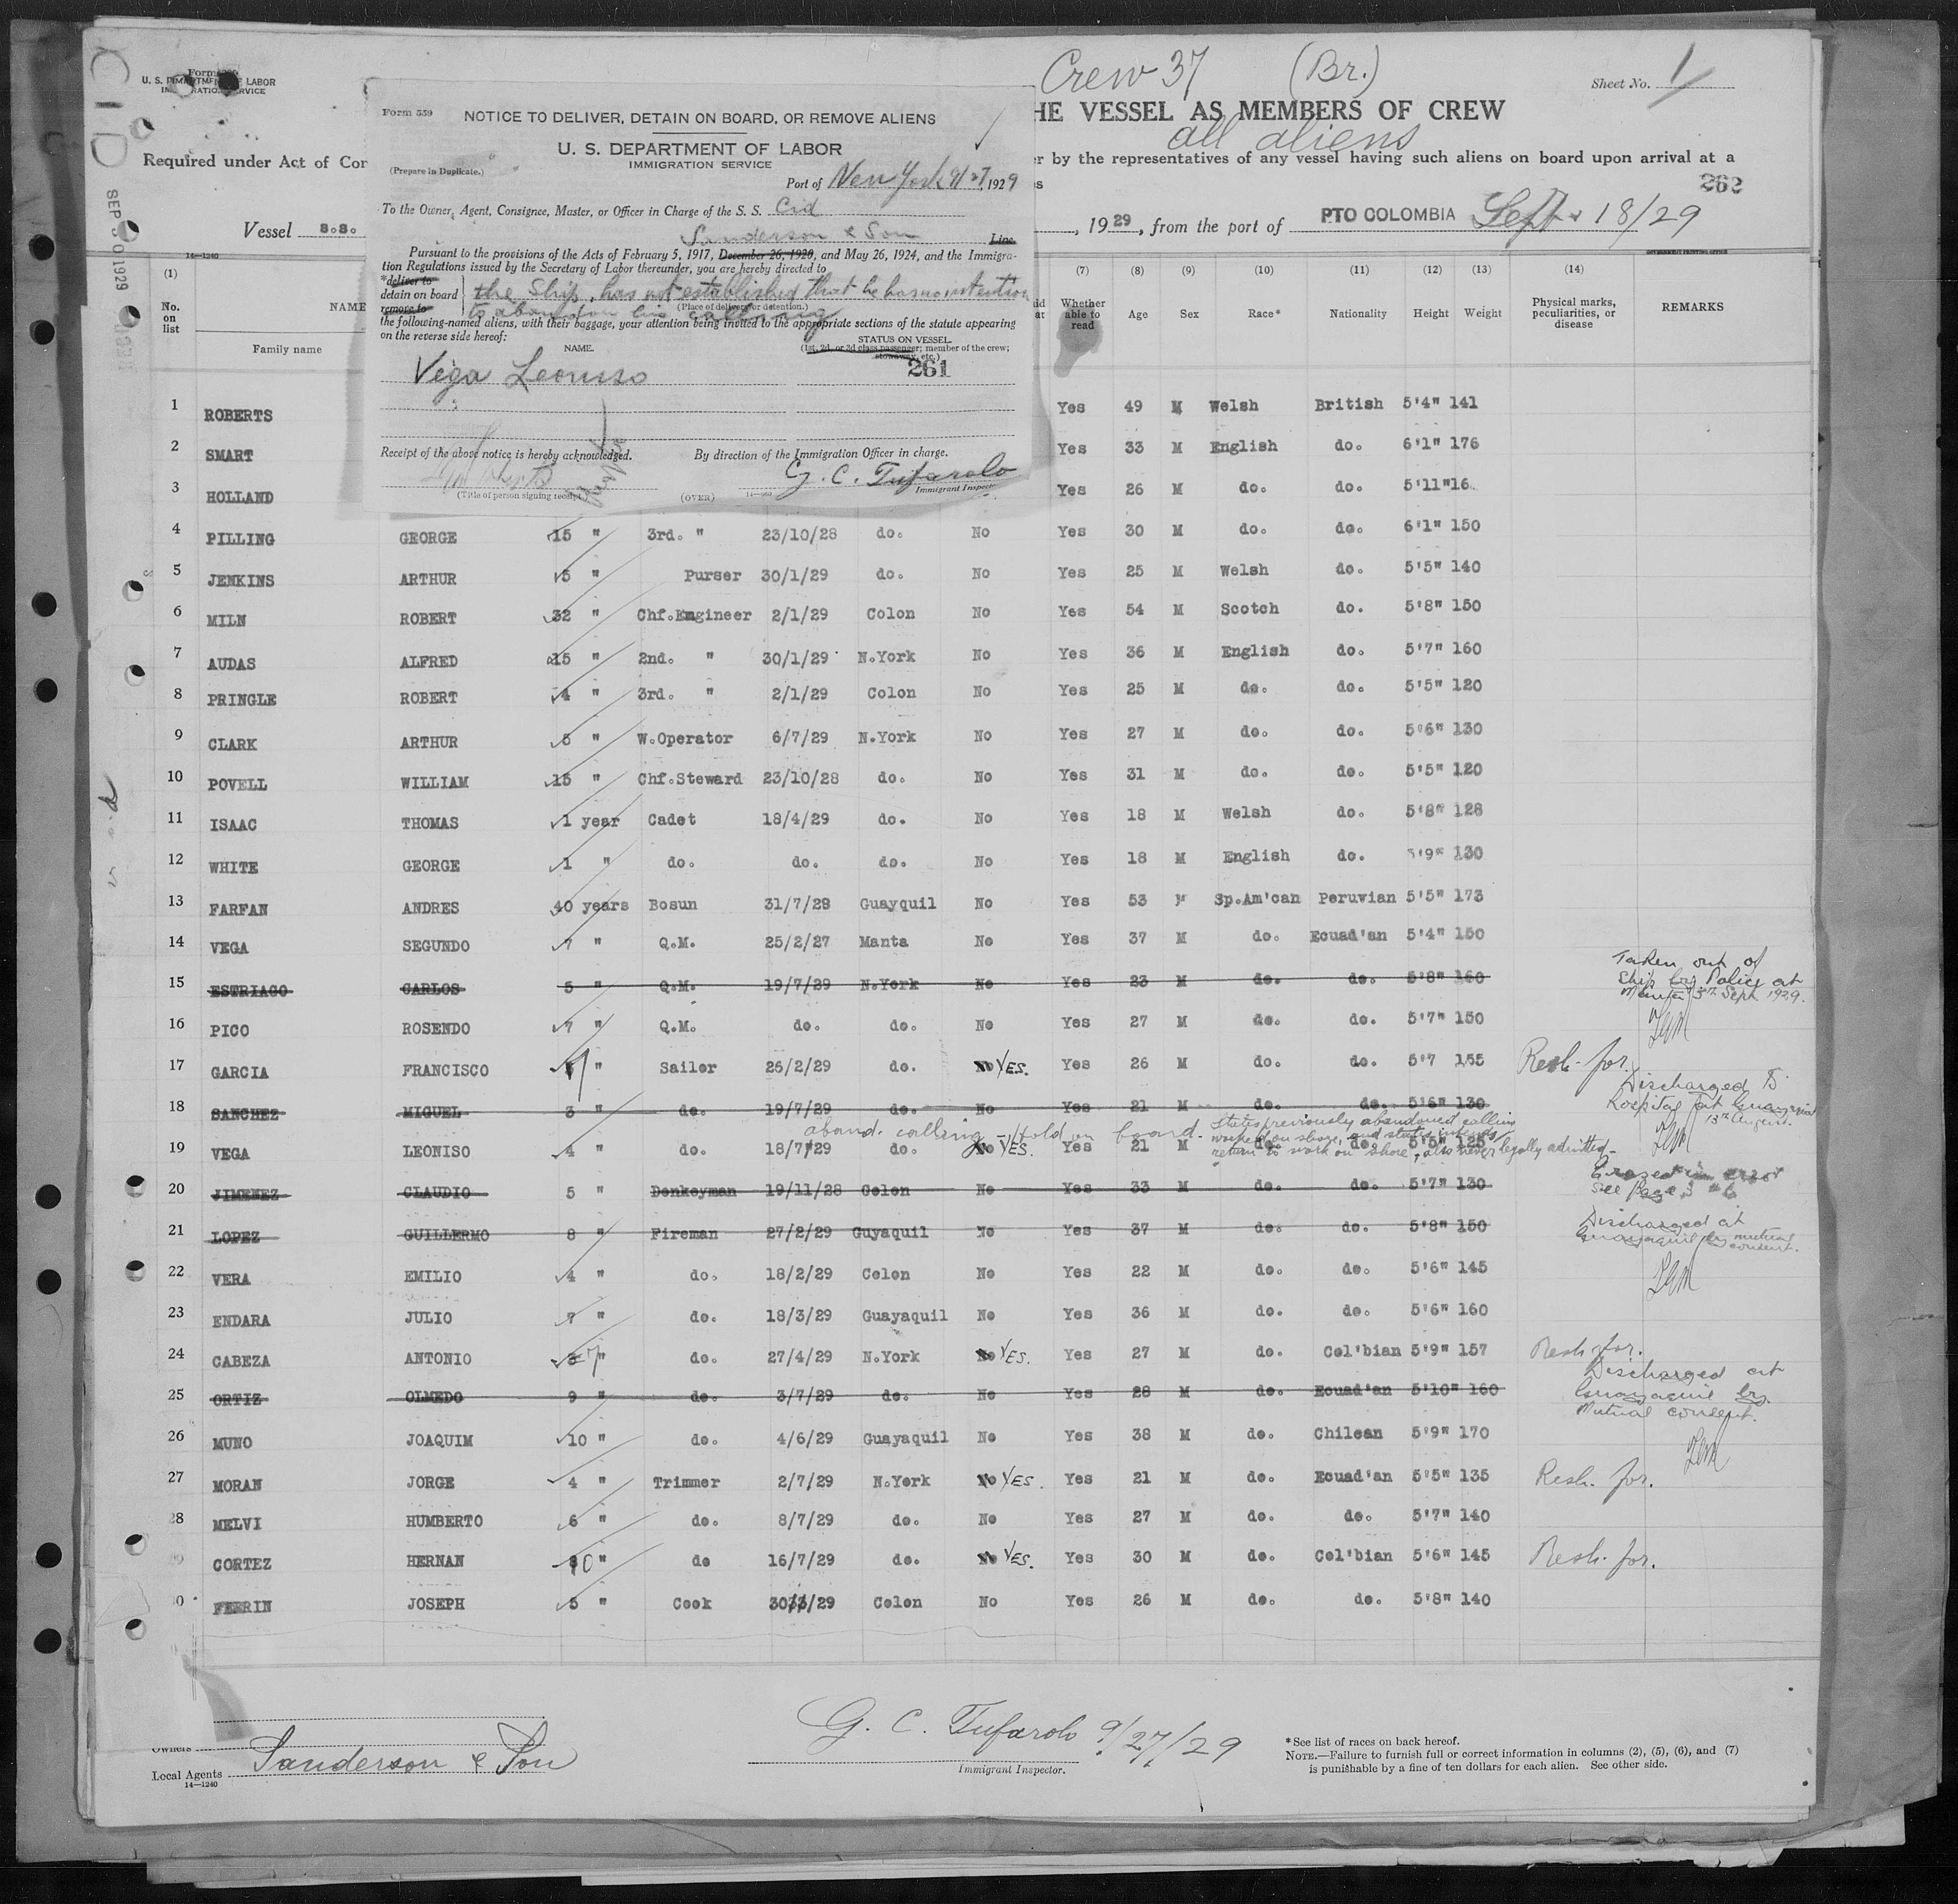 Crew 37 (Br.)
Sheet No. 1
U. S. DEPARTMENT OF LABOR
IMMIGRATION SERVICE
HE VESSEL AS MEMBERS OF CREW
all aliens
Required under Act of Con
r by the representatives of any vessel having such aliens on board upon arrival at a
262
Vessel S.S.
, 1929, from the port of PTO COLOMBIA Sept 18/29
SEP 30 1929
Form 559
NOTICE TO DELIVER, DETAIN ON BOARD, OR REMOVE ALIENS
U. S. DEPARTMENT OF LABOR
IMMIGRATION SERVICE
(Prepare in Duplicate.)
Port of New York 9/27, 1929
To the Owner, Agent, Consignee, Master, or Officer in Charge of the S. S. Cid
Sanderson & Son Line
Pursuant to the provisions of the Acts of February 5, 1917, December 26, 1920, and May 26, 1924, and the Immigra-
tion Regulations issued by the Secretary of Labor thereunder, you are hereby directed to
*deliver to
detain on board the Ship, has not established that he has no intention
remove to to abandon his calling
(Place of delivery or detention.)
the following-named aliens, with their baggage, your attention being invited to the appropriate sections of the statute appearing
on the reverse side hereof:
NAME. STATUS ON VESSEL.
(1st, 2d, or 3d class passenger; member of the crew;
stowaway, etc.)
Vega Leoniso 261
Receipt of the above notice is hereby acknowledged. By direction of the Immigration Officer in charge.
G. C. Tufarolo
(Title of person signing receipt) (OVER) Immigrant Inspector
14—1240
(1) (7) (8) (9) (10) (11) (12) (13) (14)
No. on list NAME Family name Whether able to read Age Sex Race* Nationality Height Weight Physical marks, peculiarities, or disease REMARKS
1 ROBERTS Yes 49 M Welsh British 5'4" 141
2 SMART Yes 33 M English do. 6'1" 176
3 HOLLAND Yes 26 M do. do. 5'11" 16
4 PILLING GEORGE 15 " 3rd. " 23/10/28 do. No Yes 30 M do. do. 6'1" 150
5 JENKINS ARTHUR 5 " Purser 30/1/29 do. No Yes 25 M Welsh do. 5'5" 140
6 MILN ROBERT 32 " Chf.Engineer 2/1/29 Colon No Yes 54 M Scotch do. 5'8" 150
7 AUDAS ALFRED 15 " 2nd. " 30/1/29 N.York No Yes 36 M English do. 5'7" 160
8 PRINGLE ROBERT 4 " 3rd. " 2/1/29 Colon No Yes 25 M do. do. 5'5" 120
9 CLARK ARTHUR 5 " W.Operator 6/7/29 N.York No Yes 27 M do. do. 5'6" 130
10 POVELL WILLIAM 15 " Chf.Steward 23/10/28 do. No Yes 31 M do. do. 5'5" 120
11 ISAAC THOMAS 1 year Cadet 18/4/29 do. No Yes 18 M Welsh do. 5'8" 128
12 WHITE GEORGE 1 " do. do. do. No Yes 18 M English do. 5'9" 130
13 FARFAN ANDRES 40 years Bosun 31/7/28 Guayquil No Yes 53 M Sp.Am'can Peruvian 5'5" 173
14 VEGA SEGUNDO 7 " Q.M. 25/2/27 Manta No Yes 37 M do. Ecuad'an 5'4" 150
15 ESTRIAGO CARLOS 5 " Q.M. 19/7/29 N.York No Yes 23 M do. do. 5'8" 160 Taken out of Ship by Police at Manta 3rd Sept 1929.
16 PICO ROSENDO 7 " Q.M. do. do. No Yes 27 M do. do. 5'7" 150
17 GARCIA FRANCISCO 7 " Sailor 26/2/29 do. No YES. Yes 26 M do. do. 5'7 155 Resh. for.
18 SANCHEZ MIGUEL 3 " do. 19/7/29 do. No Yes 21 M do. do. 5'6" 130 Discharged to hospital at Guayaquil 13th August.
aband. calling - Hold on board. States previously abandoned calling worked on shore, and states intends return to work on shore, also never legally admitted-
19 VEGA LEONISO 4 " do. 18/7/29 do. No YES. Yes 21 M do. do. 5'5" 125
20 JIMENEZ CLAUDIO 5 " Donkeyman 19/11/28 Colon No Yes 33 M do. do. 5'7" 130 Erased in error see Page 3 #6
21 LOPEZ GUILLERMO 8 " Fireman 27/2/29 Guyaquil No Yes 37 M do. do. 5'8" 150 Discharged at Guayaquil by mutual consent.
22 VERA EMILIO 4 " do. 18/2/29 Colon No Yes 22 M do. do. 5'6" 145
23 ENDARA JULIO 7 " do. 18/3/29 Guayaquil No Yes 36 M do. do. 5'6" 160
24 CABEZA ANTONIO 7 " do. 27/4/29 N.York No YES. Yes 27 M do. Col'bian 5'9" 157 Resh. for.
25 ORTIZ OLMEDO 9 " do. 3/7/29 do. No Yes 28 M do. Ecuad'an 5'10" 160 Discharged at Guayaquil by Mutual consent.
26 MUNO JOAQUIM 10 " do. 4/6/29 Guayaquil No Yes 38 M do. Chilean 5'9" 170
27 MORAN JORGE 4 " Trimmer 2/7/29 N.York No YES. Yes 21 M do. Ecuad'an 5'5" 135 Resh. for.
28 MELVI HUMBERTO 6 " do. 8/7/29 do. No Yes 27 M do. do. 5'7" 140
CORTEZ HERNAN 10 " do 16/7/29 do. No YES. Yes 30 M do. Col'bian 5'6" 145 Resh. for.
0 FERRIN JOSEPH 5 " Cook 30/3/29 Colon No Yes 26 M do. do. 5'8" 140
Owners
Local Agents Sanderson & Son
14—1240
G. C. Tufarolo 9/27/29
Immigrant Inspector.
*See list of races on back hereof.
NOTE.—Failure to furnish full or correct information in columns (2), (5), (6), and (7)
is punishable by a fine of ten dollars for each alien. See other side.